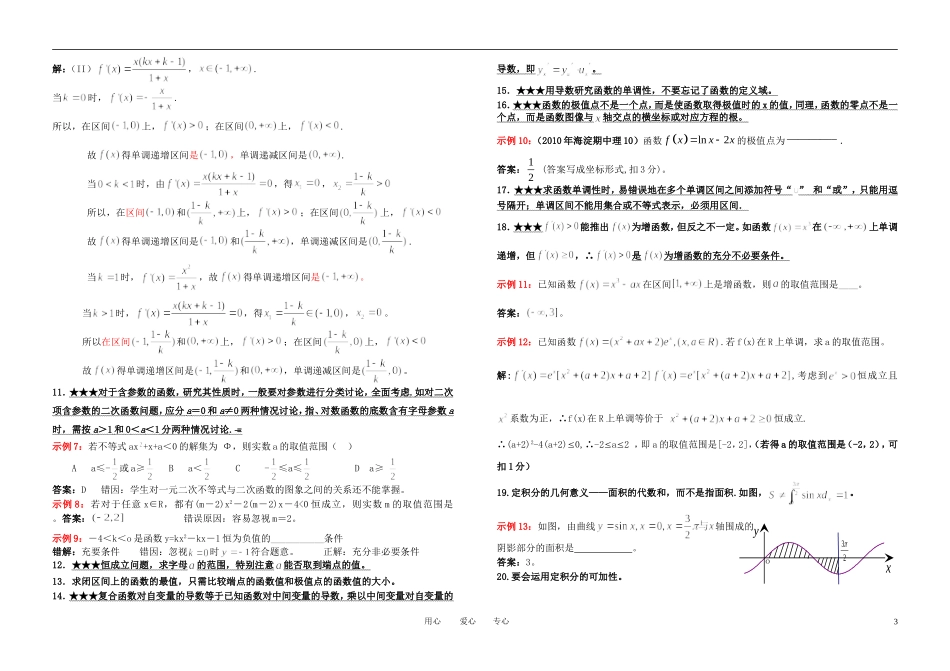 解:(II) f'(x)=x(kx+k-1)/(1+x), x∈(-1,+∞).
当k=0时, f'(x)=-x/(1+x).
所以,在区间(-1,0)上, f'(x)>0;在区间(0,+∞)上,
故f(x)得单调递增区间是(-1,0),单调递减区间是(0,+∞).
当0<k<1时,由f'(x)=x(kx+k-1)/(1+x)=0,得, x₂=(1-k)/k>0
所以,在区间(-1,0)和((1-k)/k,+∞)上, f'(x)>0;在区间(0,(1-k)/k)上, f'(x)<0
故f(x)得单调递增区间是(-1,0)和((1-k)/k,+∞),单调递减区间是(0,(1-k)/k).
当k=1时, f'(x)=x²/(1+x),故f(x)得单调递增区间是(-1,+∞).
当k>1时, f'(x)=x(kx+k-1)/(1+x)=0,得x₁=(1-k)/k∈(-1,0), x₂=0。
所以在区间(-1,(1-k)/k)和(0,+∞)上, f'(x)>0;在区间((1-k)/k,0)上, f'(x)<0
故f(x)得单调递增区间是(-1,(1-k)/k)和(0,+∞),单调递减区间是((1-k)/k,0)。
11.★★★对于含参数的函数,研究其性质时,一般要对参数进行分类讨论,全面考虑.如对二次
项含参数的二次函数问题,应分a=0和a≠0两种情况讨论,指、对数函数的底数含有字母参数a
时,需按a>1和0<a<1分两种情况讨论.
示例7:若不等式ax²+x+a<0的解集为 Φ,则实数a的取值范围( )
A a≤-1/2或a≥1/2 B a<1/2 C -1/2≤a≤1/2 D a≥1/2
答案:D 错因:学生对一元二次不等式与二次函数的图象之间的关系还不能掌握。
示例8:若对于任意x∈R,都有(m-2)x²-2(m-2)x-4<0恒成立,则实数m的取值范围是
。答案:(-2,2] 错误原因:容易忽视m=2。
示例9:-4<k<o是函数y=kx²-kx-1恒为负值的___________条件
错解:充要条件 错因:忽视k=0时y=-1符合题意。 正解:充分非必要条件
12.★★★恒成立问题,求字母a的范围,特别注意a能否取到端点的值。
13.求闭区间上的函数的最值,只需比较端点的函数值和极值点的函数值的大小。
14.★★★复合函数对自变量的导数等于已知函数对中间变量的导数,乘以中间变量对自变量的
导数,即
15.★★★用导数研究函数的单调性,不要忘记了函数的定义域。
16.★★★函数的极值点不是一个点,而是使函数取得极值时的x的值,同理,函数的零点不是一
个点,而是函数图像与x轴交点的横坐标或对应方程的根。
示例10:(2010年海淀期中理10)函数f(x)=ln x-2x的极值点为__________.
答案: 1/2 (答案写成坐标形式,扣3分)。
17.★★★求函数单调性时,易错误地在多个单调区间之间添加符号“∪” 和“或”,只能用逗
号隔开;单调区间不能用集合或不等式表示,必须用区间.
18.★★★f'(x)>0能推出f(x)为增函数,但反之不一定。如函数f(x)=x³在(-∞,+∞)上单调
递增,但f'(x)≥0,∴f'(x)>0是f(x)为增函数的充分不必要条件。
示例11:已知函数f(x)=x³-ax在区间[1,+∞)上是增函数,则a的取值范围是____。
答案:(-∞,3]。
示例12:已知函数f(x)=(x²+ax+2)eˣ,(x,a∈R).若f(x)在R上单调,求a的取值范围。
解:f'(x)=eˣ[x²+(a+2)x+a+2] f'(x)=eˣ[x²+(a+2)x+a+2],考虑到eˣ>0恒成立且
x²系数为正,∴f(x)在R上单调等价于 x²+(a+2)x+a+2≥0恒成立.
∴(a+2)²-4(a+2)≤0,∴-2≤a≤2 ,即a的取值范围是[-2,2],(若得a的取值范围是(-2,2),可
扣1分)
19.定积分的几何意义——面积的代数和,而不是指面积.如图,
示例13:如图,由曲线y=sin x,x=0,x=3/2π与x轴围成的
阴影部分的面积是____________。
答案:3。
20.要会运用定积分的可加性。
y
3π/2
o
x
用心 爱心 专心 3